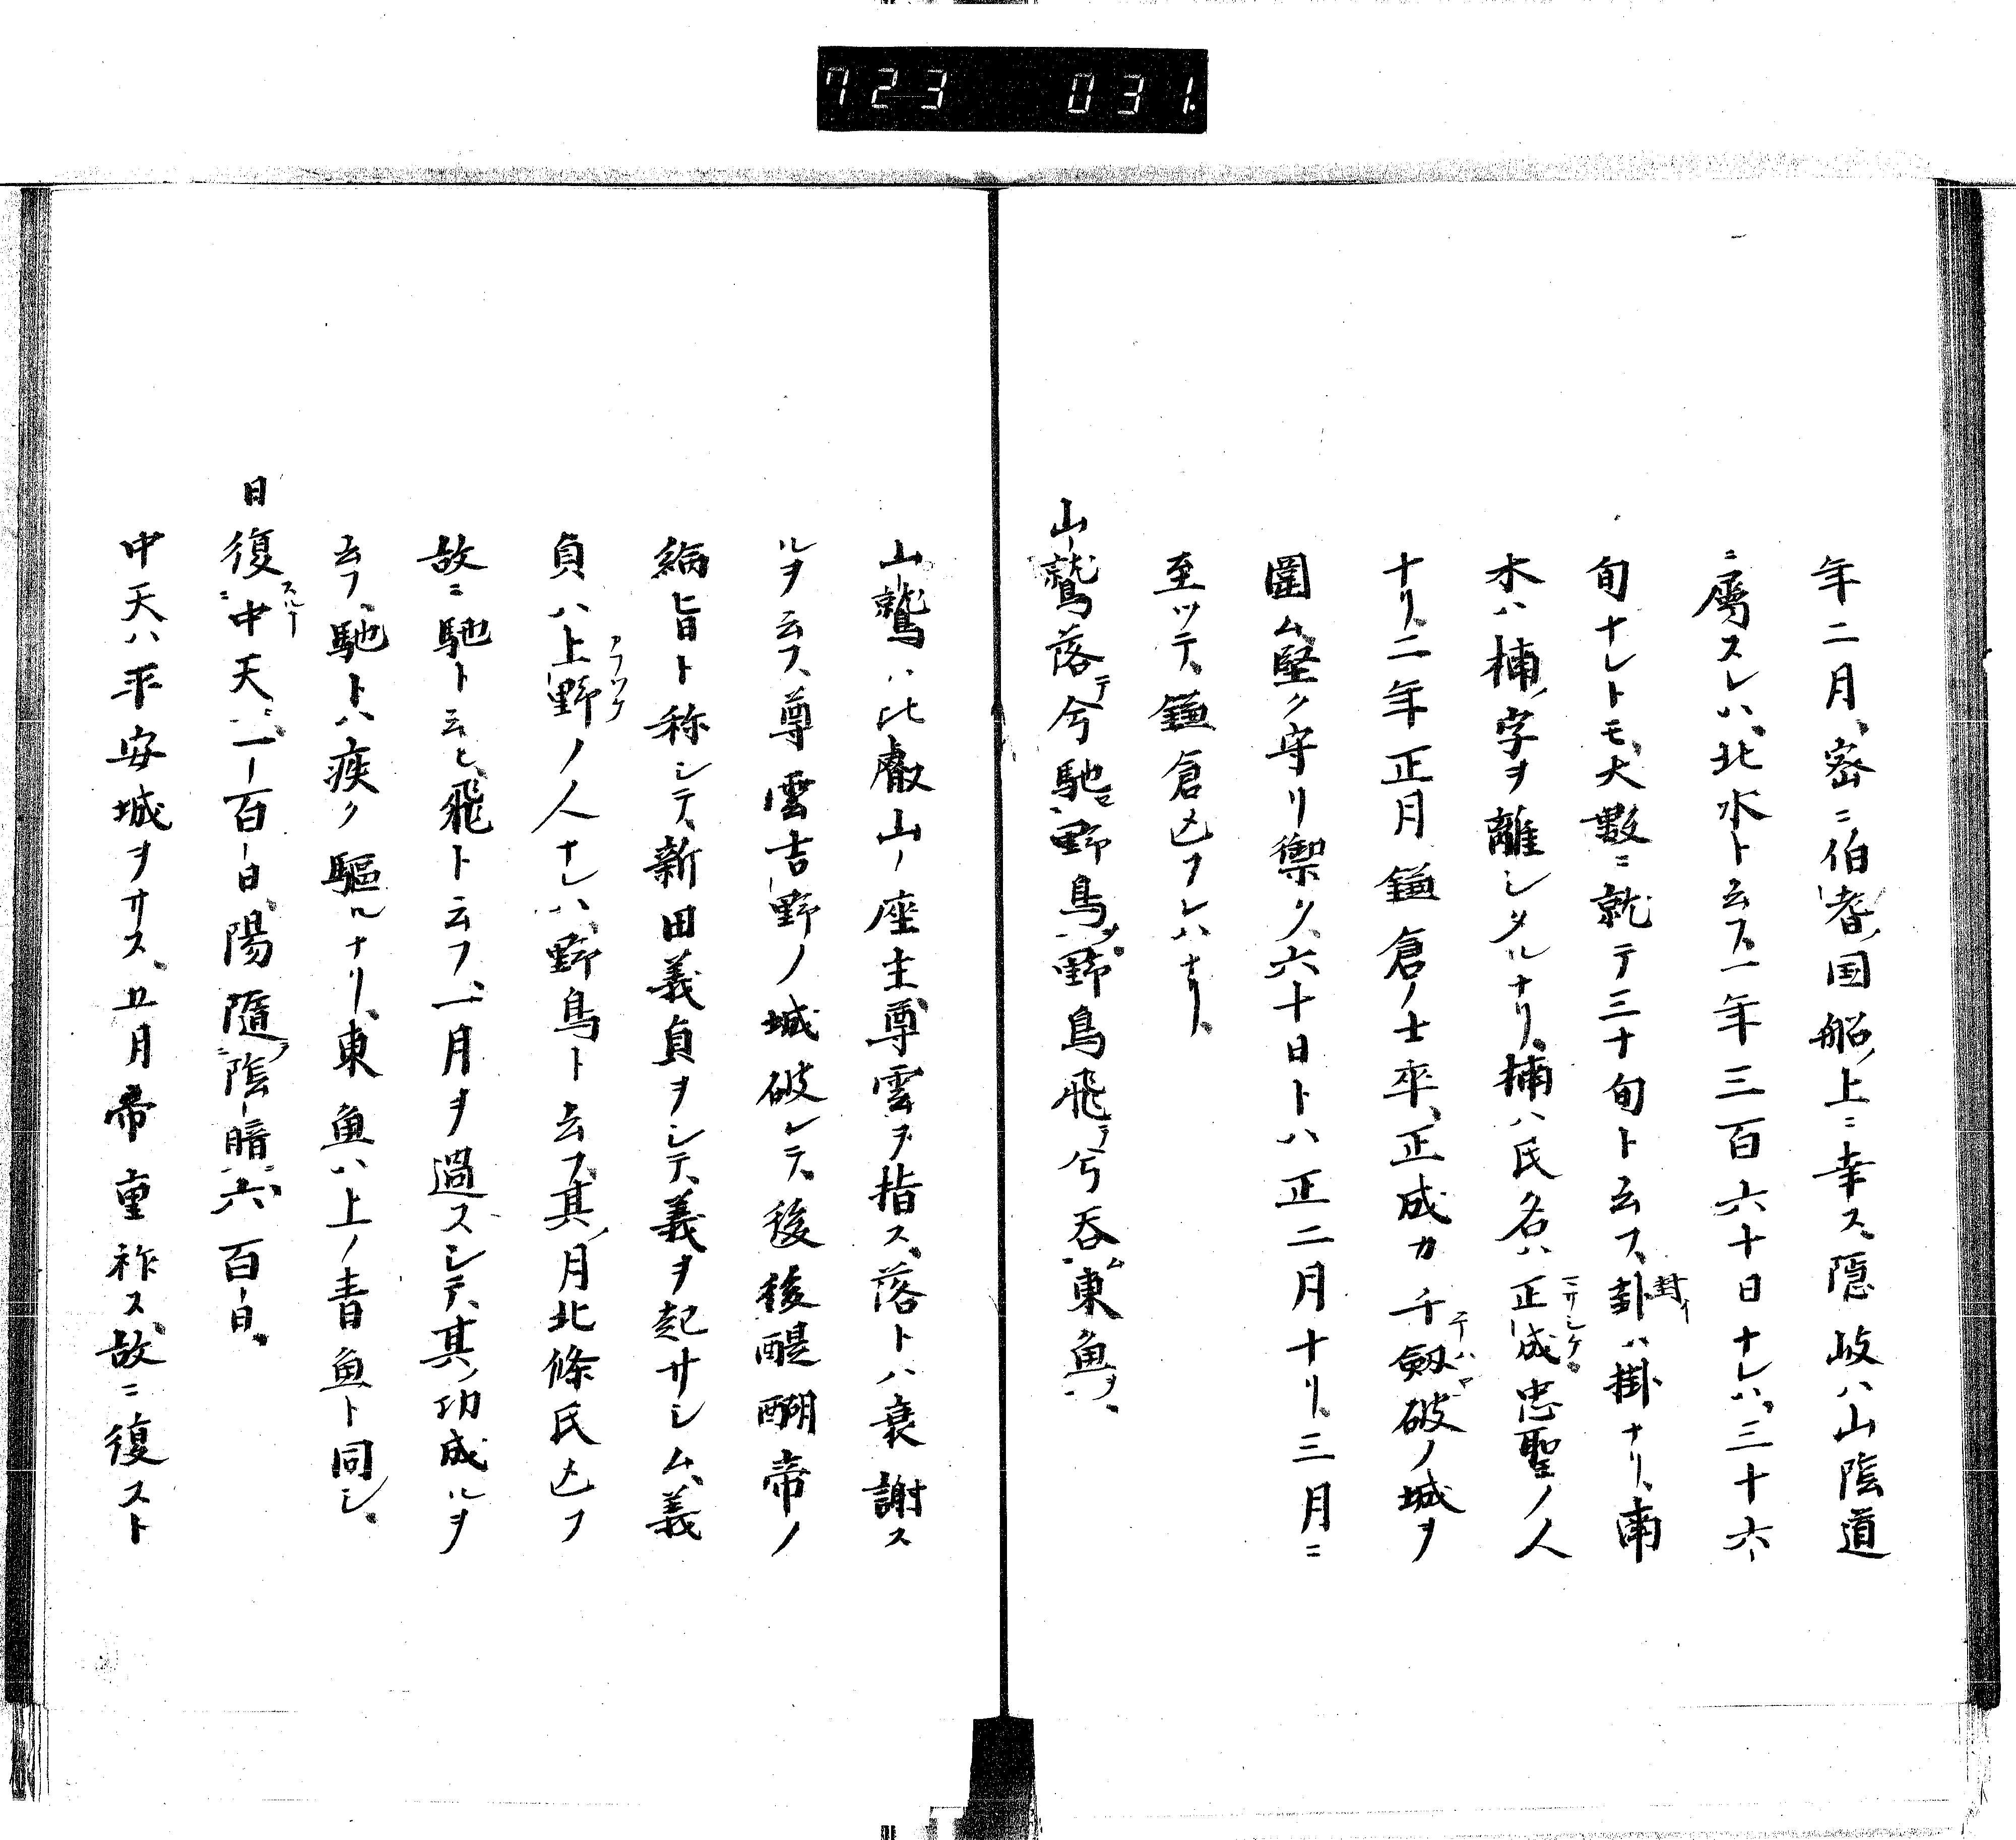 723 031
年二月、密ニ伯耆国船ノ上ニ幸ス、隠岐ハ山陰道
ニ属スレハ、北水ト云フ、一年三百六十日ナレハ、三十六
旬ナレトモ、大數ニ就テ三十旬ト云フ、卦ハ掛ナリ、南
木ハ楠ノ字ヲ離シタルナリ、楠ハ氏名ハ正成忠聖ノ人
ナリ、二年正月鎌倉ノ士卒、正成カ千劔破ノ城ヲ
圍ム、堅ク守リ禦ク、六十日トハ正二月ナリ、三月ニ
至ツテ、鎌倉亡フレハナリ、
山鷲落テ兮馳ニ野鳥ヲ野鳥飛テ兮呑ム東魚ヲ、
山鷲ハ比叡山ノ座主尊雲ヲ指ス、落トハ衰謝ス
ルヲ云フ、尊雲吉野ノ城破レテ、後後醍醐帝ノ
綸旨ト称シテ、新田義貞ヲシテ、義ヲ起サシム、義
貞ハ上野ノ人ナレハ、野鳥ト云フ、其ノ月北條氏亡フ
故ニ馳ト云ヒ、飛ト云フ、一月ヲ過スシテ、其ノ功成ルヲ
云フ、馳トハ疾ク驅ルナリ、東魚ハ上ノ青魚ト同シ、
日復スルー中天ニ、一百日、陽隨陰暗六百日、
中天ハ平安城ヲサス、五月帝重祚ス、故ニ復スト